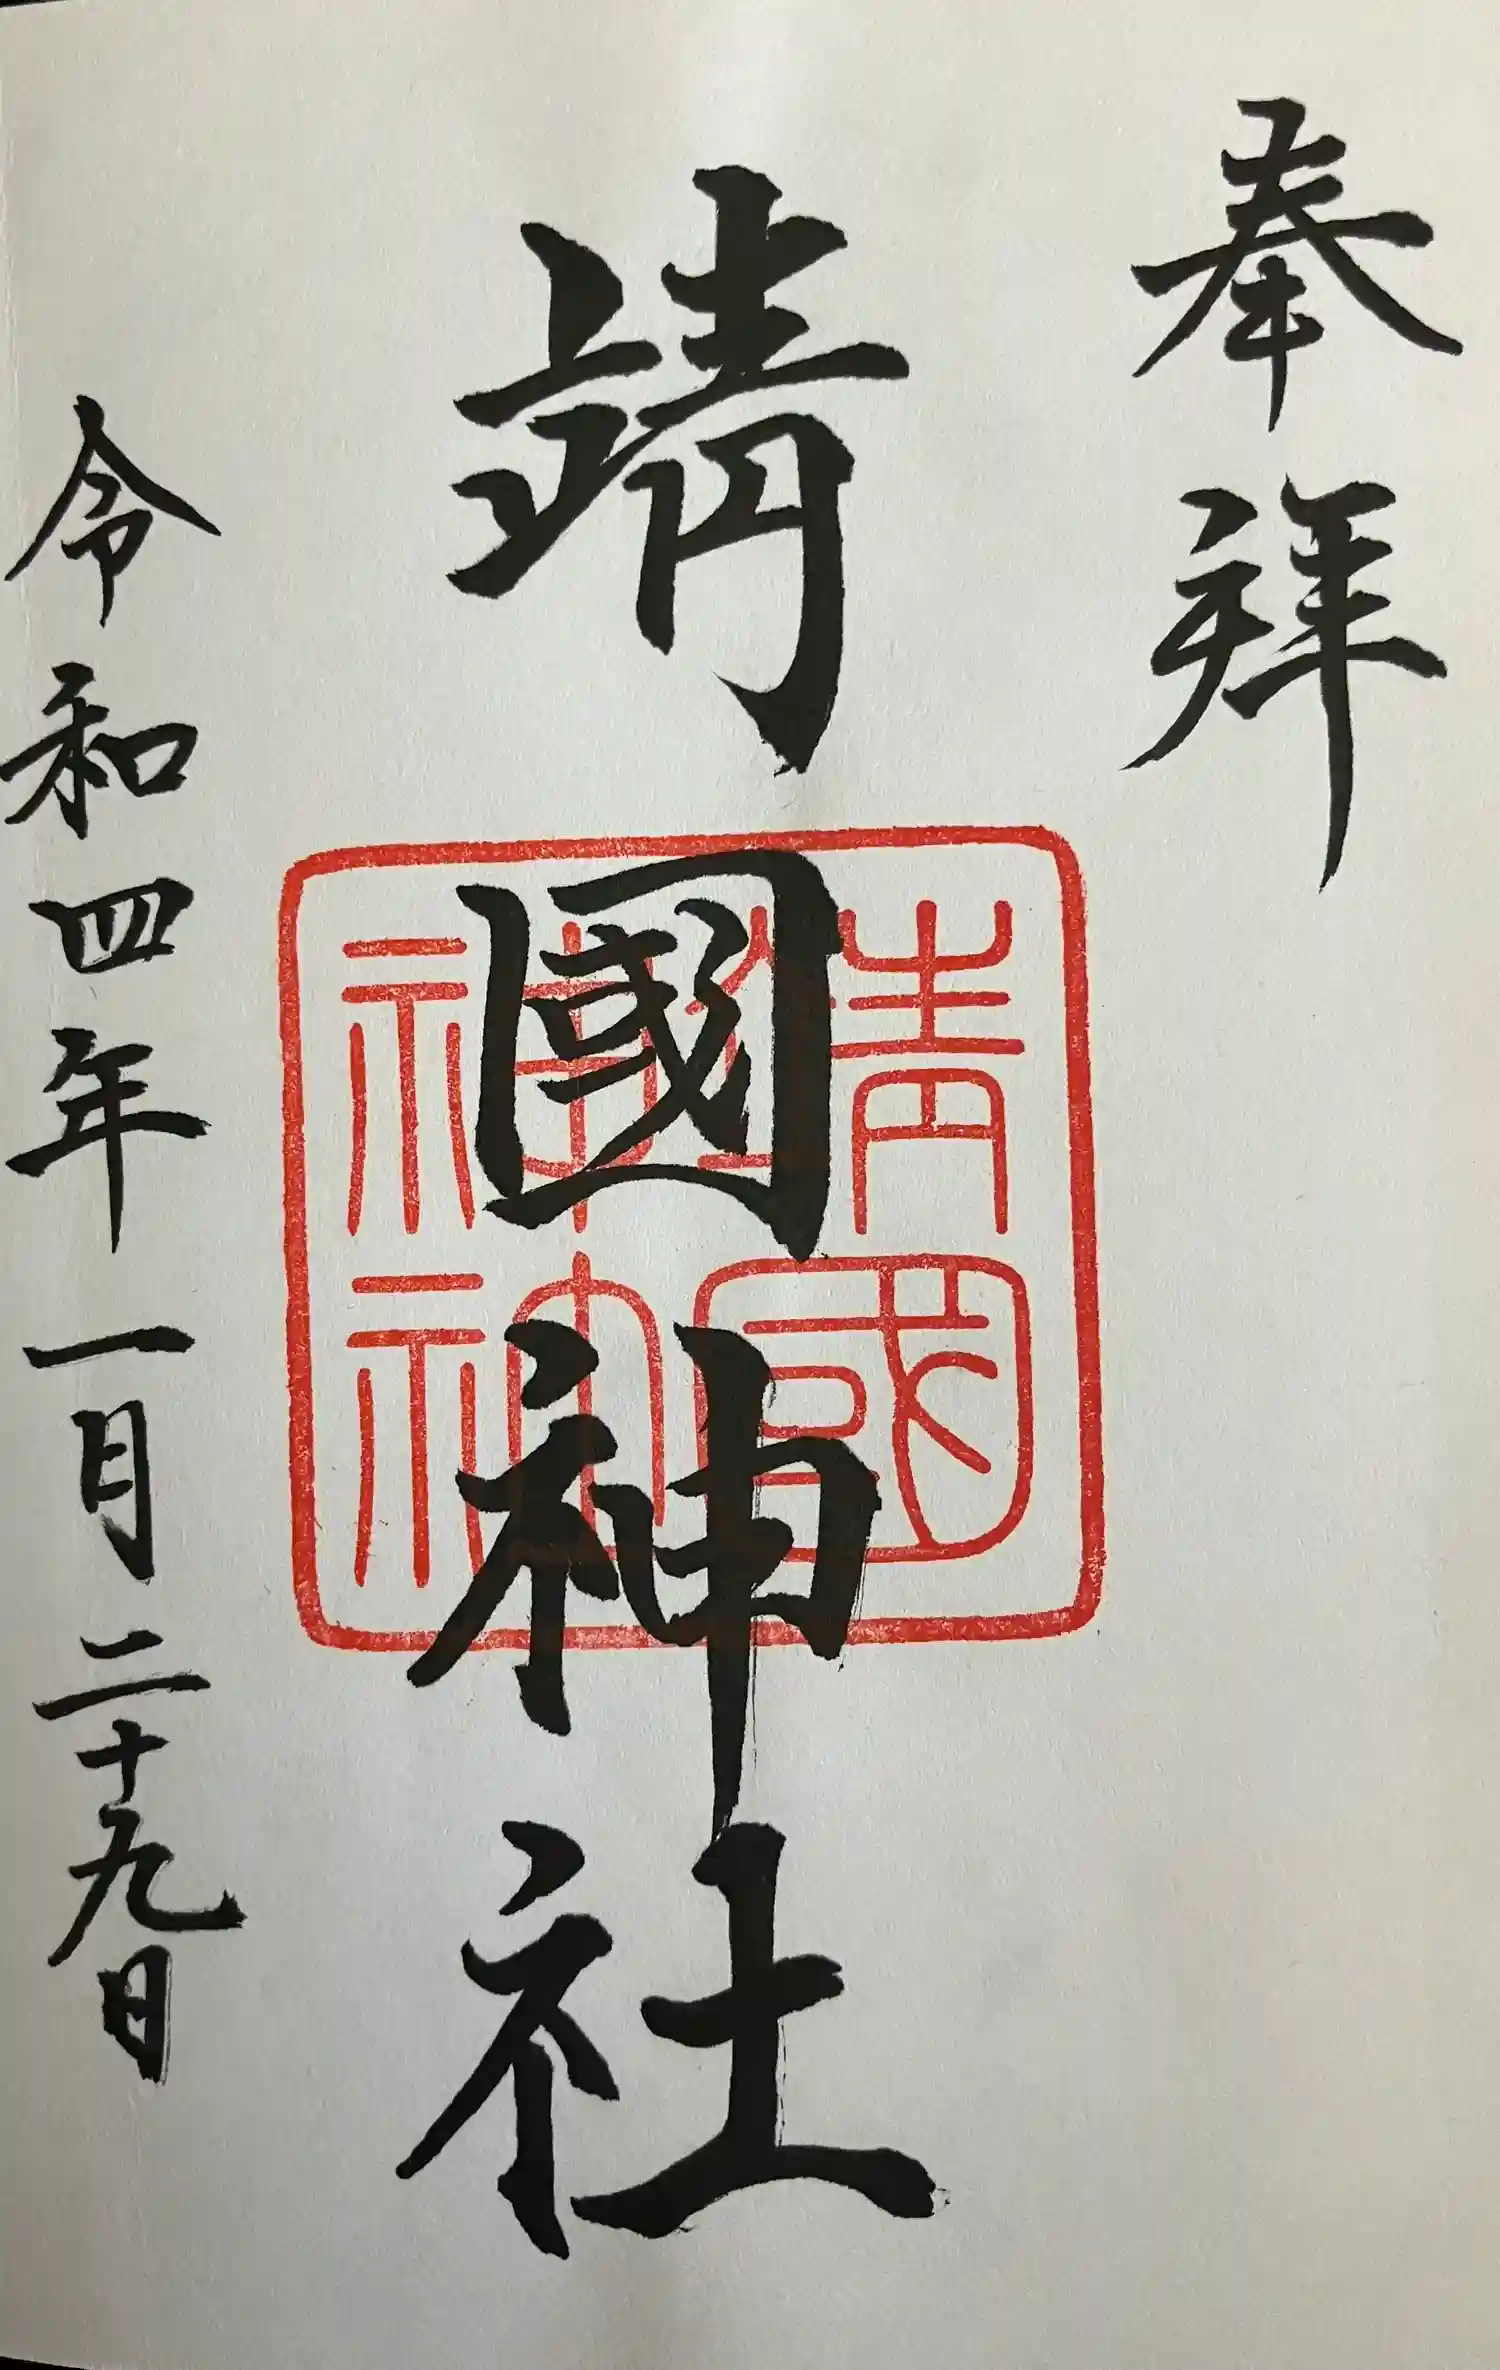 奉拜
靖國神社
靖國神社
令和四年一月二十九日